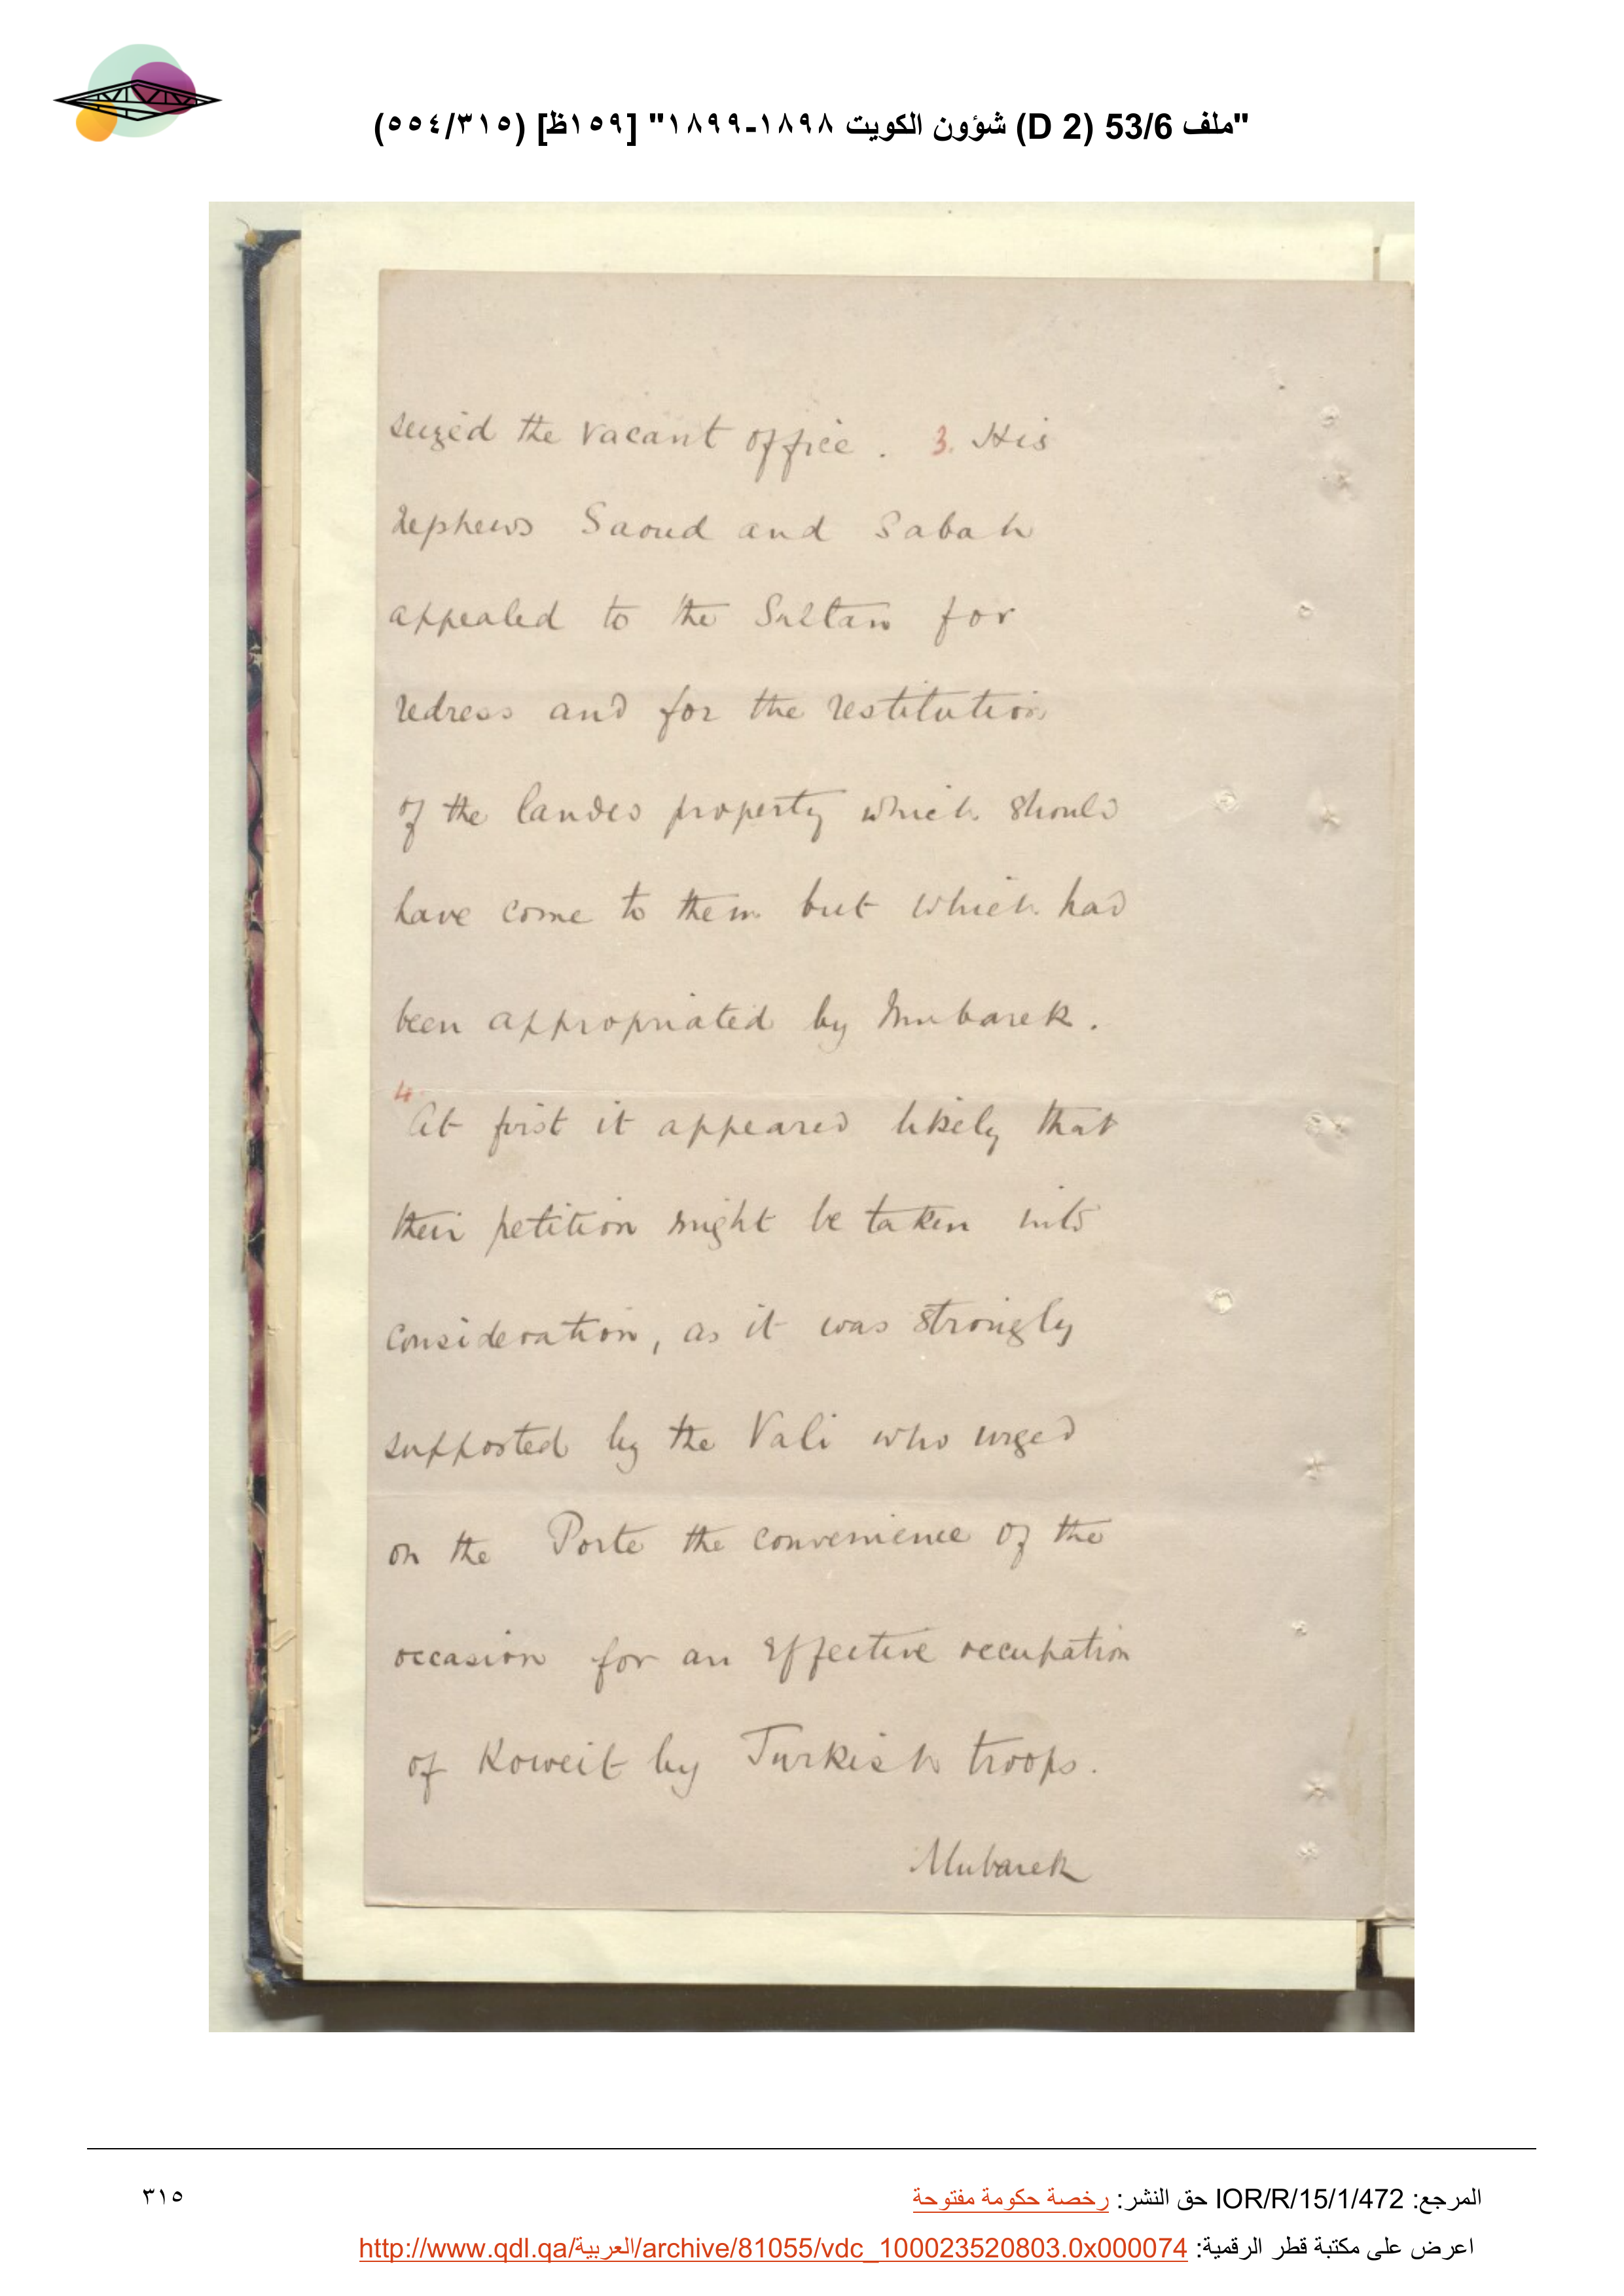 "ملف 53/6 (D 2) شؤون الكويت ١٨٩٨-١٨٩٩" [١٥٩ظ] (٥٥٤/٣١٥)
seized the vacant office. 3. His
nephews Saoud and Sabah
appealed to the Sultan for
redress and for the restitution
of the landed property which should
have come to them but which had
been appropriated by Mubarek.
4. At first it appeared likely that
their petition might be taken into
consideration, as it was strongly
supported by the Vali who urged
on the Porte the convenience of the
occasion for an effective occupation
of Koweit by Turkish troops.
Mubarek
المرجع: IOR/R/15/1/472 حق النشر: رخصة حكومة مفتوحة
٣١٥
اعرض على مكتبة قطر الرقمية: http://www.qdl.qa/العربية/archive/81055/vdc_100023520803.0x000074